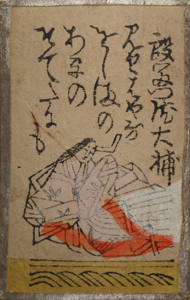 殷富門院大輔
見せはやな
をしまの
あまの
そてたにも